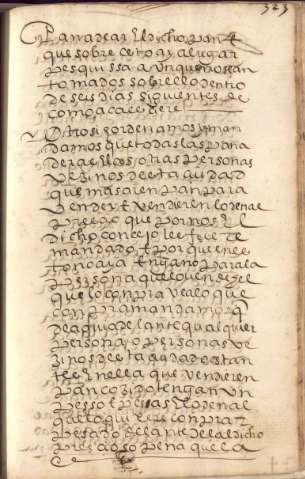 323
Panadear el dicho pan e
que sobre esto aya lugar
pesquissa aunque no sean
tomados sobre ello dentro
de seis dias siguientes de
como acaesciere
Otrosi hordenamos y man
damos que todas las pana
deras e las otras personas
vezinos desta ciudad
que masaren pan para
vender e venderen lo den al
presçio que por nos el
dicho concejo les fue
mandado e porque en ello
no aya engaño para la
persona que lo vende y el
que lo compra vea lo que
compra mandamos q
de aqui adelante qualquier
persona o personas ve
zinos desta ciudad o estan
tes en ella que vendieren
pan cozido tengan un
pesso e pesas e lo den al
que lo quisiere comprar
pesado de la que de la dicho
presçio so pena que la